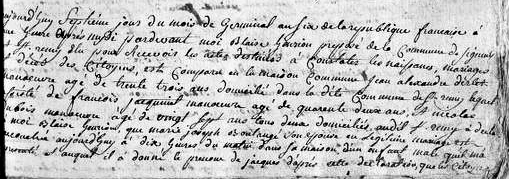 aujourd'huy septieme jour du mois de Germinal an six de la republique francaise à
une heure après midy pardevant moi Blaise Guerion preposé de la Commune de
st remy élu pour recevoir les actes destinés à Constater les naissances, mariages
et deces des Citoyens, est Comparu en la maison Commune jean alexandre
manoeuvre agé de trente trois ans domicilié dans la d'ite Commune de st remy lequel
assisté de francois jacquinet manoeuvre agé de quarante deux ans, et nicolas
dubois manoeuvre agé de vingt sept ans tous deux domiciliés audit st remy à declaré
à moi Blaise Guerion, que marie joseph Boulangé son epouse en legitime mariage est
accouchée aujourd'huy à dix heures du matin dans sa maison d'un enfant male qu'il m'a
presenté et auquel il a donné le prenom de jacques d'apres cette declaration, que les citoyens